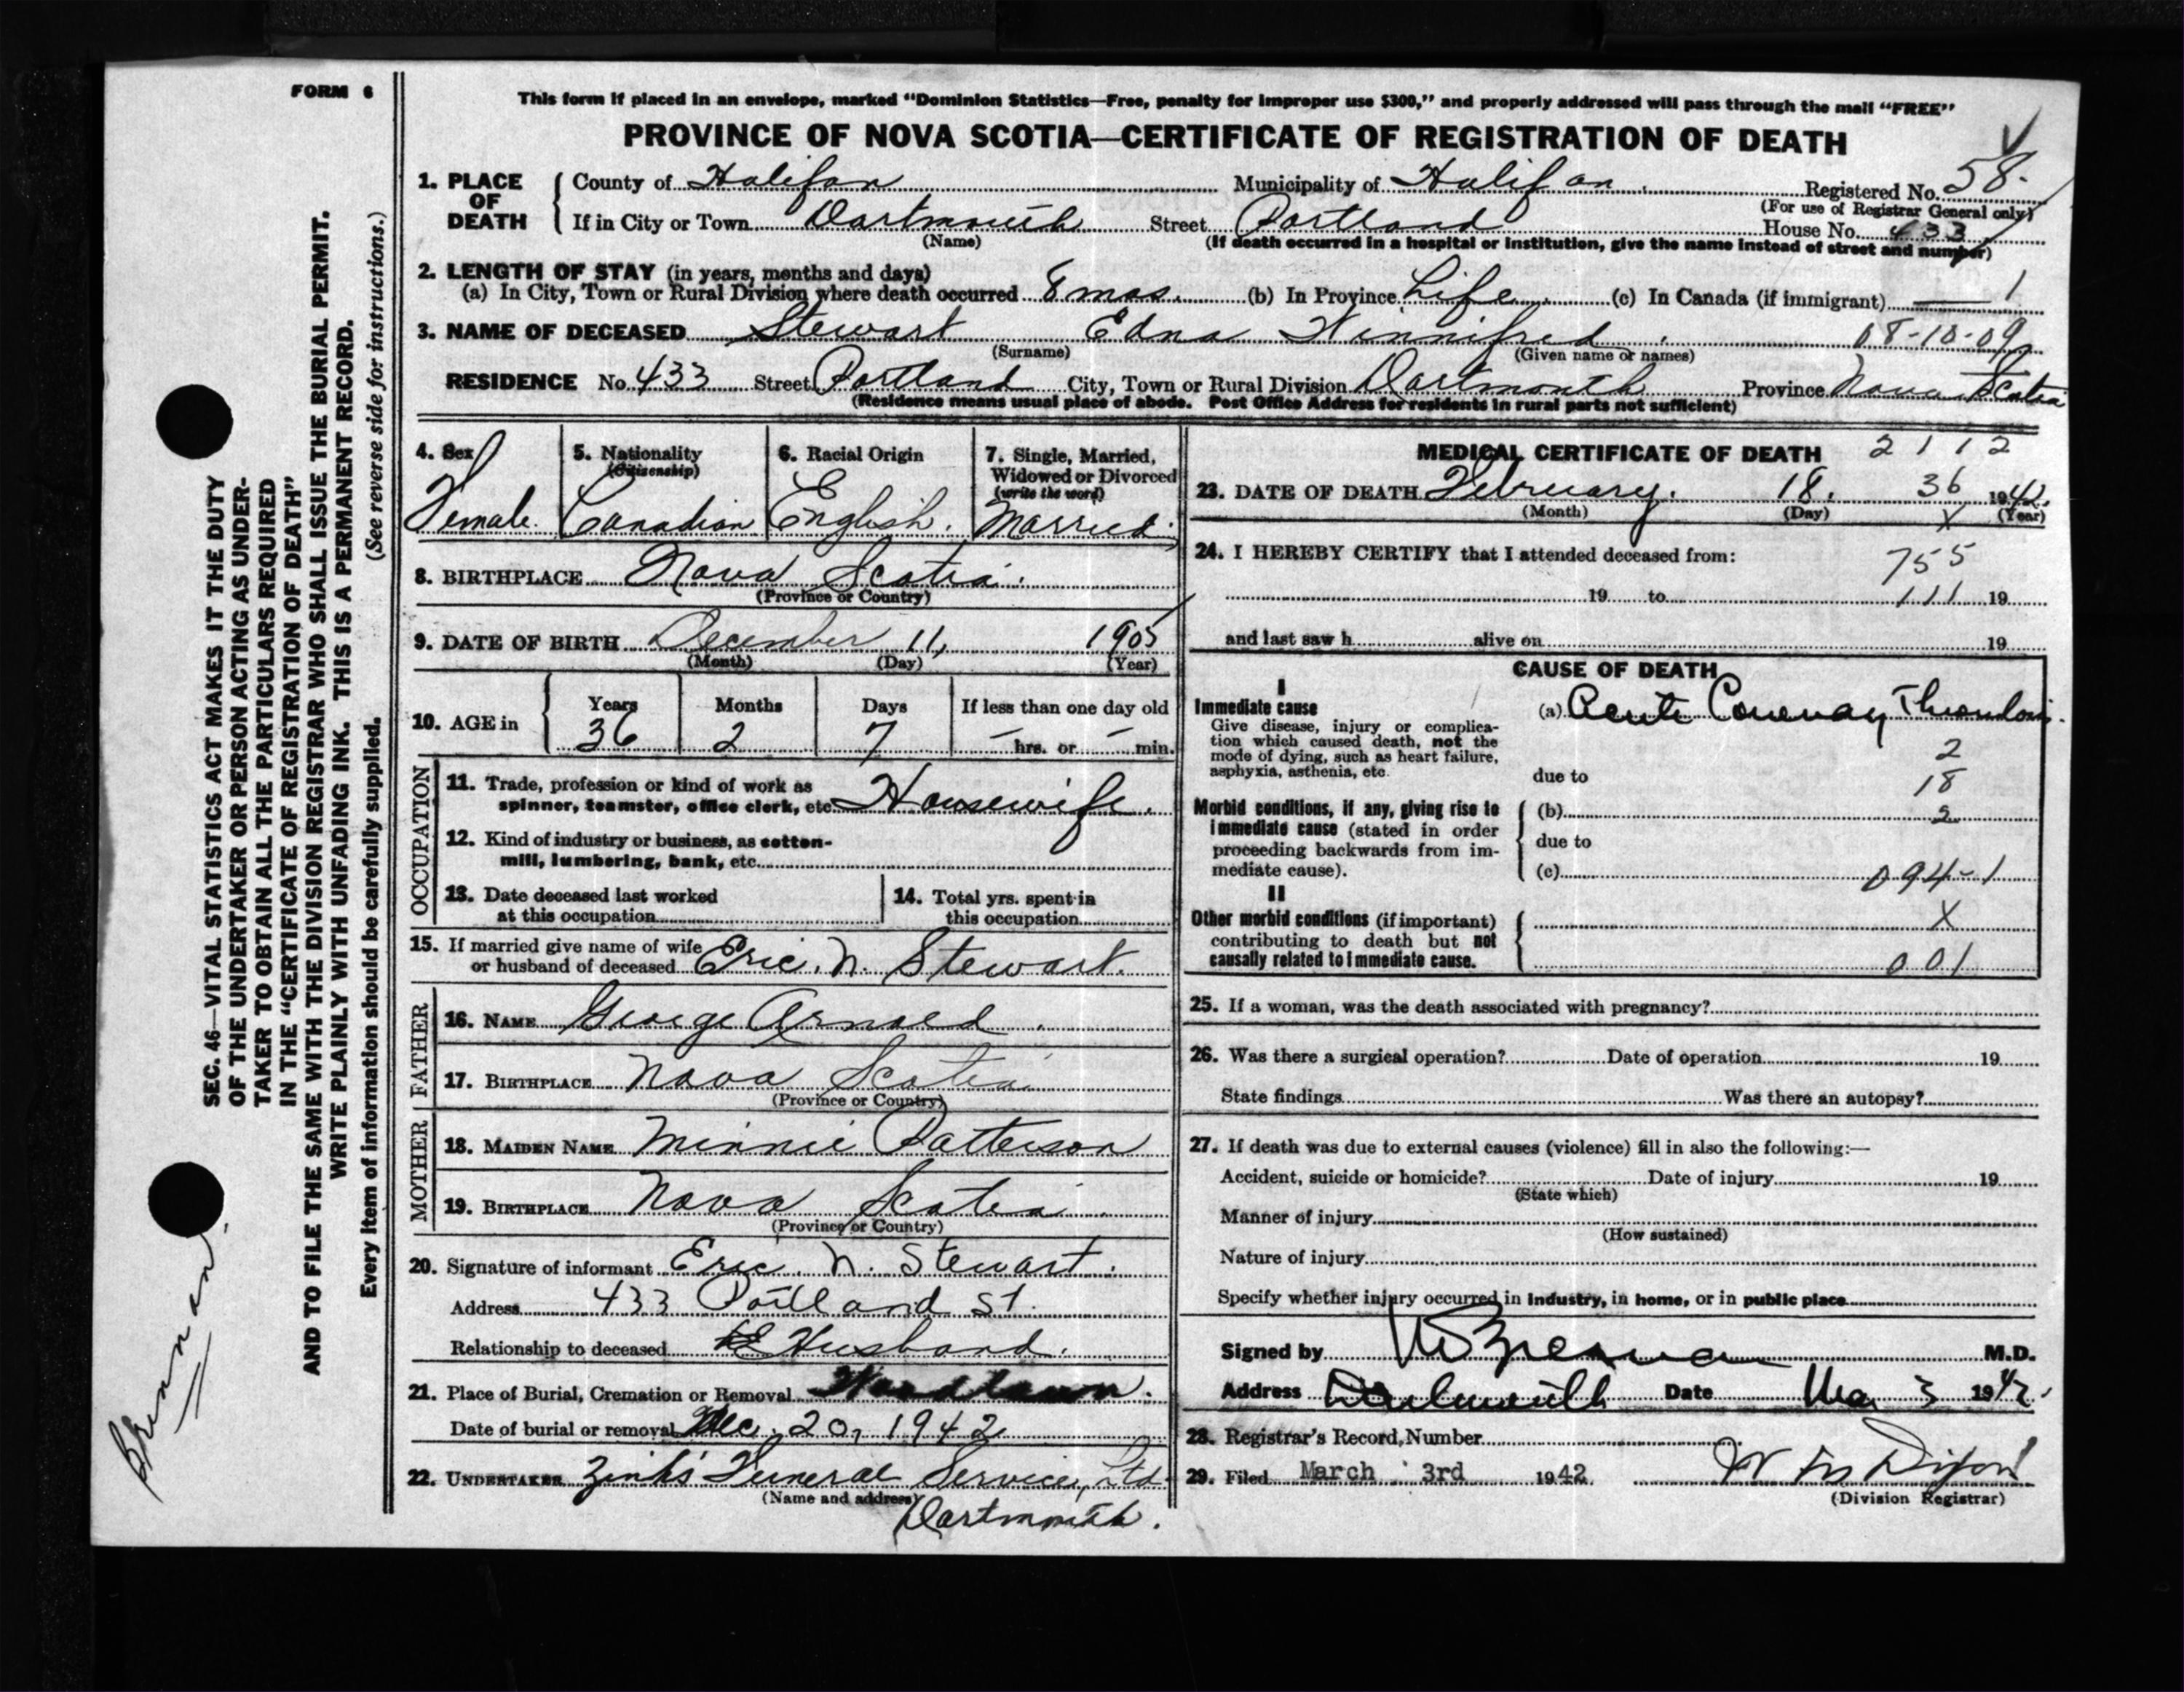 FORM 6
This form if placed in an envelope, marked "Dominion Statistics—Free, penalty for improper use $300," and properly addressed will pass through the mail "FREE"
PROVINCE OF NOVA SCOTIA—CERTIFICATE OF REGISTRATION OF DEATH
1. PLACE OF DEATH County of Halifax Municipality of Halifax. Registered No. 58.
(For use of Registrar General only)
If in City or Town Dartmouth Street Portland House No. 433
(Name) (If death occurred in a hospital or institution, give the name instead of street and number)
2. LENGTH OF STAY (in years, months and days)
(a) In City, Town or Rural Division where death occurred 8 mos. (b) In Province Life. (c) In Canada (if immigrant) — 1
3. NAME OF DECEASED Stewart Edna Winnifred. 08-10-09
(Surname) (Given name or names)
RESIDENCE No. 433 Street Portland City, Town or Rural Division Dartmouth Province Nova Scotia
(Residence means usual place of abode. Post Office Address for residents in rural parts not sufficient)
4. Sex Female.
5. Nationality (Citizenship) Canadian
6. Racial Origin English.
7. Single, Married, Widowed or Divorced (write the word) Married.
8. BIRTHPLACE Nova Scotia.
(Province or Country)
9. DATE OF BIRTH December 11, 1905
(Month) (Day) (Year)
10. AGE in Years 36 Months 2 Days 7 If less than one day old – hrs. or – min.
OCCUPATION
11. Trade, profession or kind of work as
spinner, teamster, office clerk, etc. Housewife.
12. Kind of industry or business, as cotton-
mill, lumbering, bank, etc.
13. Date deceased last worked
at this occupation
14. Total yrs. spent in
this occupation
15. If married give name of wife
or husband of deceased Eric. N. Stewart.
FATHER
16. NAME George Arnold.
17. BIRTHPLACE Nova Scotia
(Province or Country)
MOTHER
18. MAIDEN NAME Minnie Patterson
19. BIRTHPLACE Nova Scotia.
(Province or Country)
20. Signature of informant Eric. N. Stewart.
Address 433 Portland St.
Relationship to deceased Husband.
21. Place of Burial, Cremation or Removal Woodlawn.
Date of burial or removal 20, 1942
22. UNDERTAKER Zinks' Funeral Service, Ltd
(Name and address)
Dartmouth.
MEDICAL CERTIFICATE OF DEATH 2 1 1 2
23. DATE OF DEATH February. 18. 36 1942.
(Month) (Day) X (Year)
24. I HEREBY CERTIFY that I attended deceased from: 755
19 to 111 19
and last saw h alive on 19
CAUSE OF DEATH
I
Immediate cause
Give disease, injury or complica-
tion which caused death, not the
mode of dying, such as heart failure,
asphyxia, asthenia, etc.
(a) Acute Coronary Thrombosis.
2
due to
18
Morbid conditions, if any, giving rise to
immediate cause (stated in order
proceeding backwards from im-
mediate cause).
(b) 2
due to
(c) 094-1
II
Other morbid conditions (if important)
contributing to death but not
causally related to immediate cause.
X
001
25. If a woman, was the death associated with pregnancy?
26. Was there a surgical operation? Date of operation 19
State findings Was there an autopsy?
27. If death was due to external causes (violence) fill in also the following:—
Accident, suicide or homicide? Date of injury 19
(State which)
Manner of injury
(How sustained)
Nature of injury
Specify whether injury occurred in industry, in home, or in public place
Signed by M.D.
Address Dartmouth Date Mar 3 1942.
28. Registrar's Record Number
29. Filed March 3rd 1942
(Division Registrar)
SEC. 46—VITAL STATISTICS ACT MAKES IT THE DUTY
OF THE UNDERTAKER OR PERSON ACTING AS UNDER-
TAKER TO OBTAIN ALL THE PARTICULARS REQUIRED
IN THE "CERTIFICATE OF REGISTRATION OF DEATH"
AND TO FILE THE SAME WITH THE DIVISION REGISTRAR WHO SHALL ISSUE THE BURIAL PERMIT.
WRITE PLAINLY WITH UNFADING INK. THIS IS A PERMANENT RECORD.
Every item of information should be carefully supplied. (See reverse side for instructions.)
Brennan